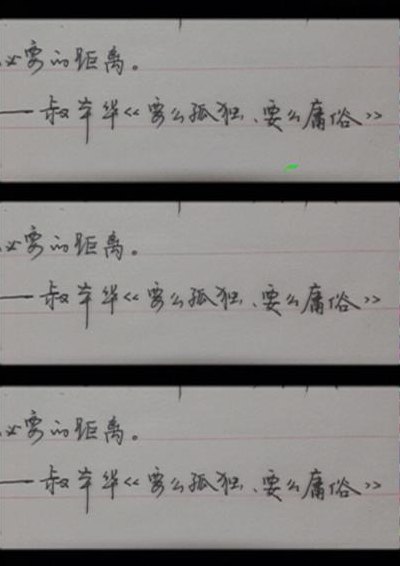 必要的距离。
——叔本华《要么孤独、要么庸俗》
必要的距离。
——叔本华《要么孤独、要么庸俗》
必要的距离。
——叔本华《要么孤独、要么庸俗》